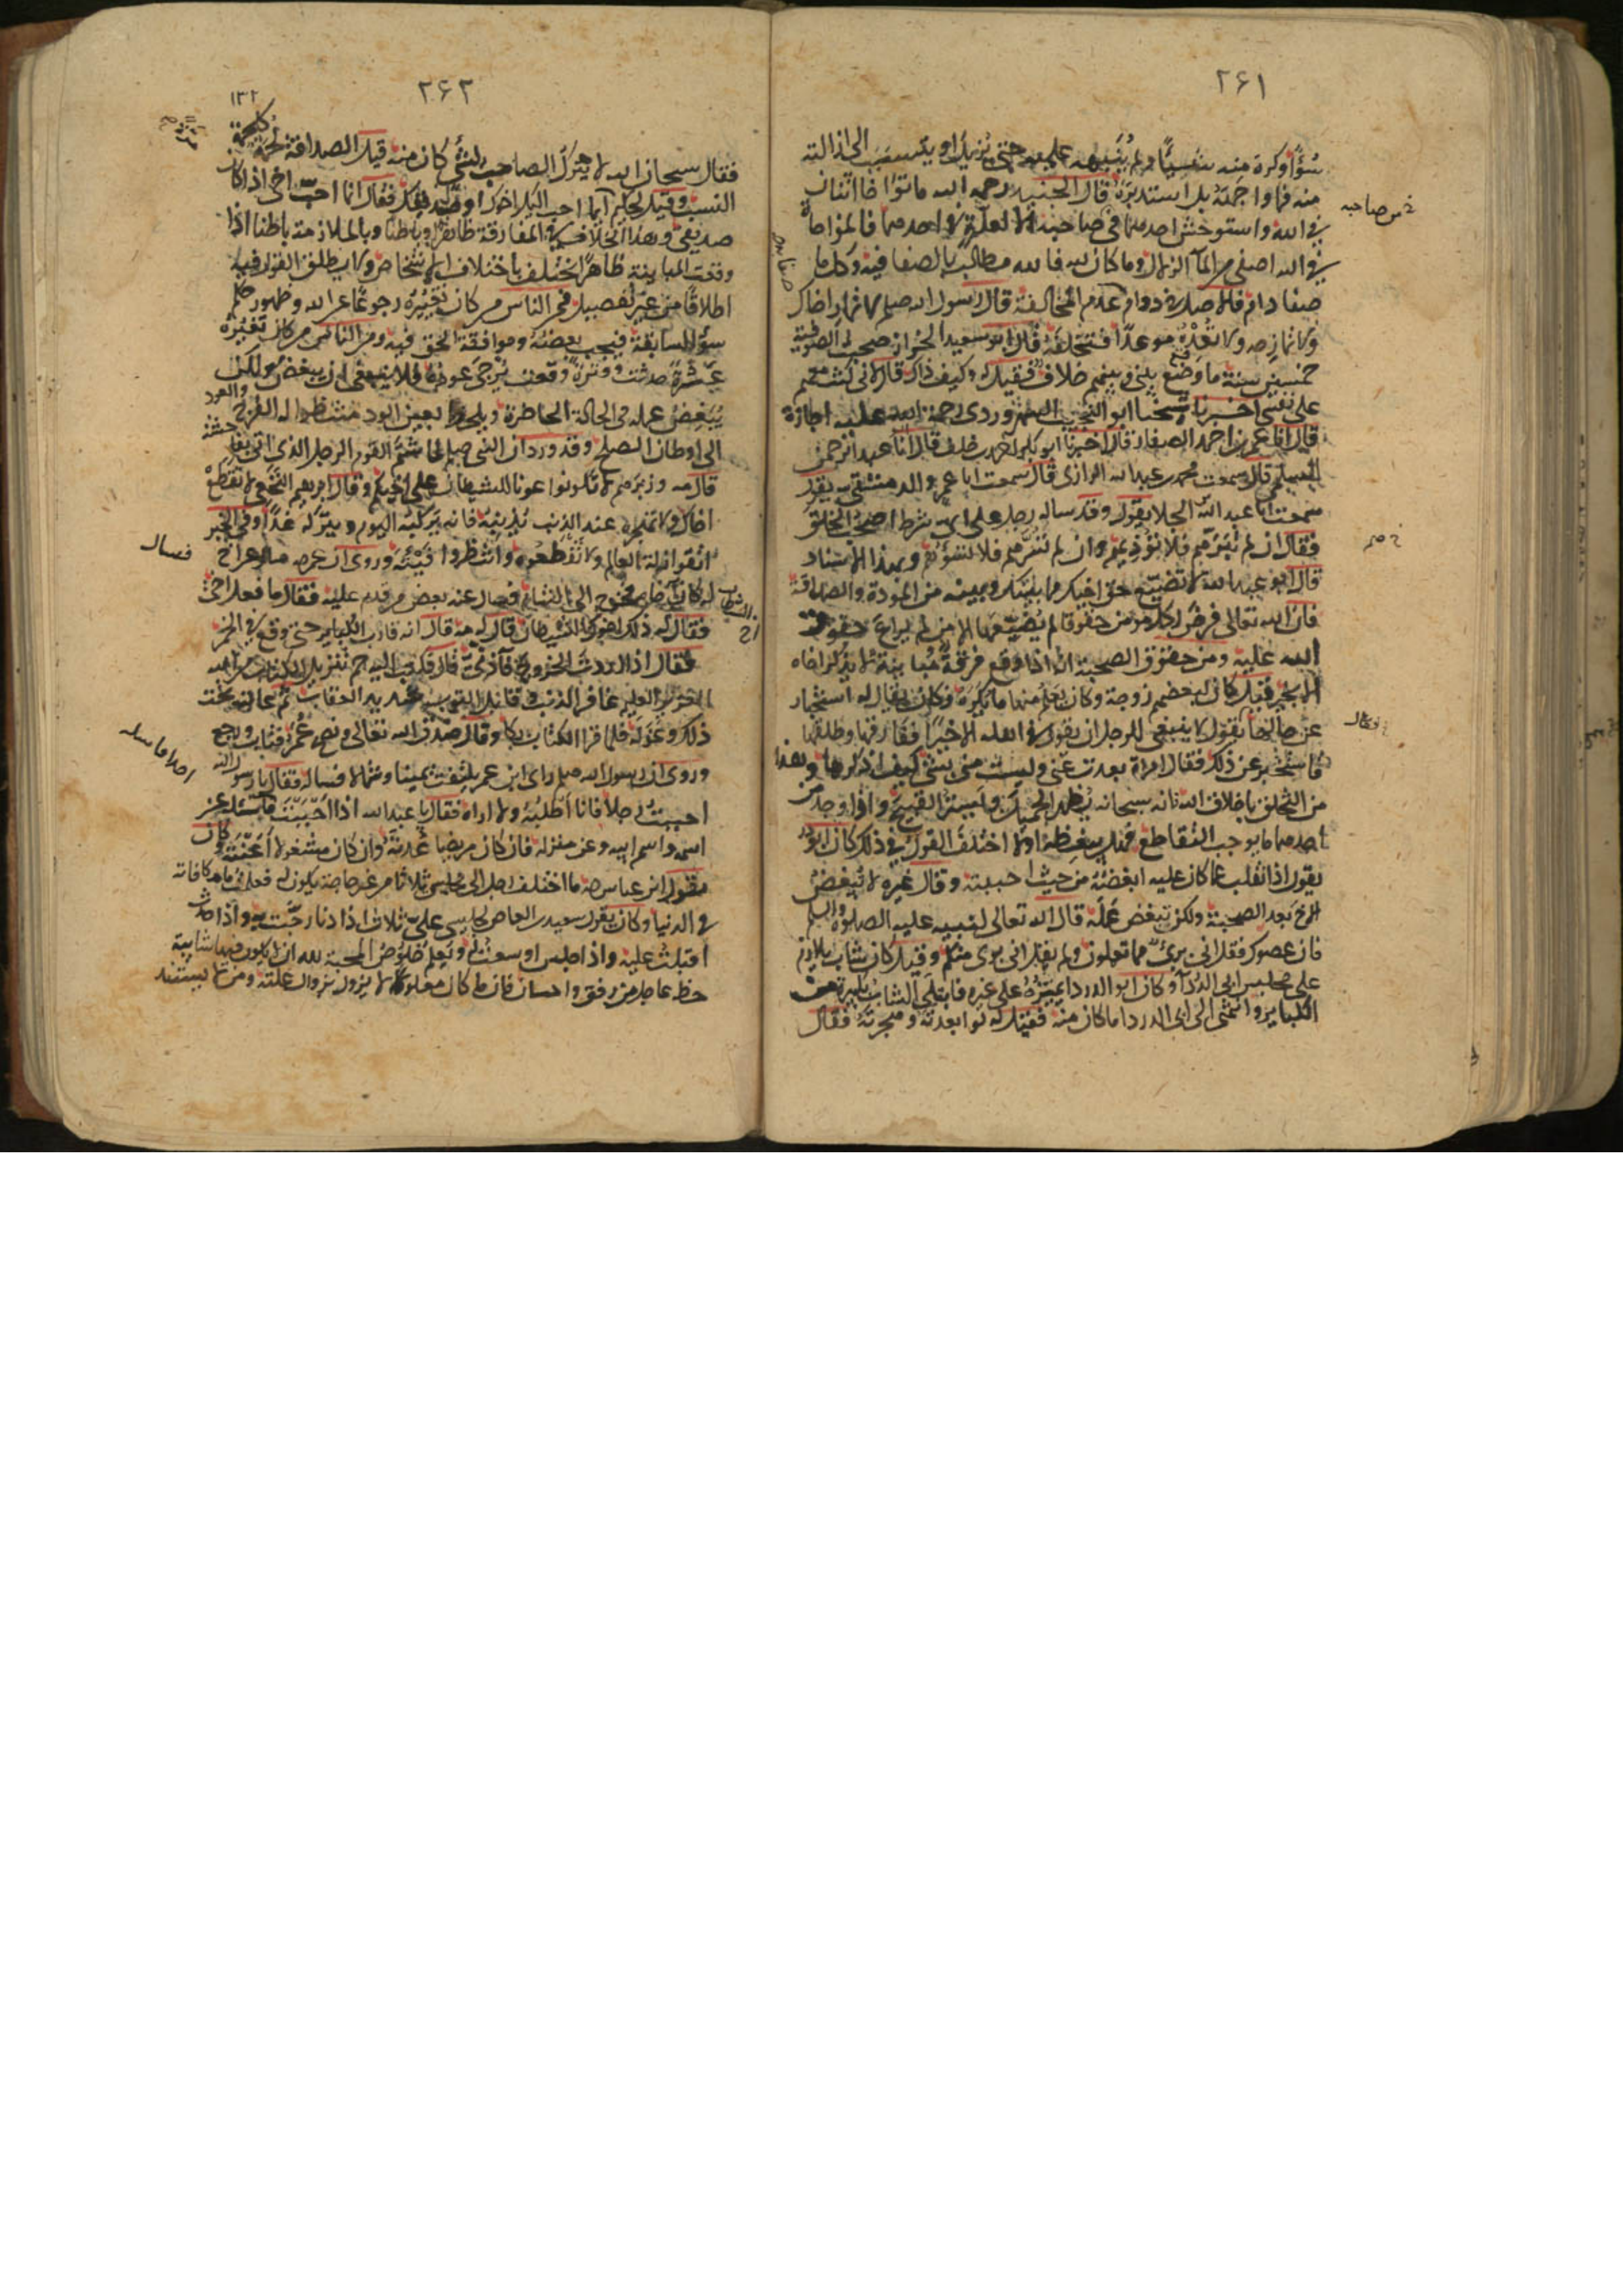 ٢۶١
سوًا او كره منه شيئًا ولم ينبهه عليه حتى يزيله او يتسبب الى ازالته
منه فما واجهته بل استدبرته قال الجنيد رحمه الله ما تواخا اثنان
في الله واستوحش احدهما في صاحبه الا لعلة في احدهما فالمواخاة
في الله اصفى من الماء الزلال وما كان لله فالله مطالب بالصفا فيه وكل ما
صفا دام فالاصل في دوام عدم المخالفة قال رسول الله صلم لا تمار اخاك
ولا تمازحه ولا تعده موعدًا فتخلفه قال ابو سعيد الخراز صحبت الصوفية
خمسين سنة ما وقع بيني وبينهم خلاف فقيل له وكيف ذاك قال لاني كنت معهم
على نفسي اخبرنا شيخنا ابو النجيب السهروردي رحمة الله عليه اجازة
قال انا عمر بن احمد الصفار قال اخبرنا ابو بكر احمد بن خلف قال انا عبد الرحمن
السلمي قال سمعت محمد بن عبد الله الرازي قال سمعت ابا عمرو الدمشقي يقول
سمعت ابا عبد الله بن الجلا يقول وقد ساله رجل على اي شرط اصحب الخلق
فقال ان لم تبرهم فلا تؤذيهم وان لم تسرهم فلا تسؤهم وبهذا الاسناد
قال ابو عبد الله لا تضيع حق اخيك بما بينك وبينه من المودة والصداقة
فان الله تعالى فرض لكل مومن حقوقا لم يضيعها الا من لم يراع حقوق
الله عليه ومن حقوق الصحبة انه اذا وقع فرقة ومباينة لا يذكر اخاه
الا بخير فقيل كان لبعضهم زوجة وكان يعلم منها ما يكره وكان يقال له استخبار
عن حالها يقول لا ينبغي للرجل ان يقول في اهله الا خيرًا ففارقها وطلقها
فاستخبر عن ذلك فقال امراة بعدت عني وليست مني بشي كيف اذكرها وهذا
من التخلق باخلاق الله تعالى انه سبحانه يظهر الجميل ويستر القبيح واذا وجد من
احدهما ما يوجب التقاطع فهل يبغضه او لا اختلف القول في ذلك كان ابو ذر
يقول اذا انقلب عما كان عليه ابغضته من حيث احببته وقال غيره لا تبغض
الاخ بعد الصحبة ولكن تبغض عمله قال الله تعالى لنبيه عليه الصلوة والسلم
فان عصوك فقل اني بريء مما تعملون ولم يقل اني بري منكم وقيل كان شاب يلازم
على مجلس ابي الدردآ وكان ابو الدردا يميزه على غيره فابتلي الشاب بكبيرة من
الكباير وانتهى الى ابي الدردا ما كان منه فقيل له لو ابعدته وهجرته فقال
من صاحبه
فقال
٢۶٢
١٣٢
فقال سبحان الله لا يترك الصاحب بشي كان منه قيل الصداقة لحمة كلحمة
النسب وقيل لحكيم ايما احب اليك اخوك او صديقك فقال انما احب اخي اذا كان
صديقي وهذا الخلاف في المفارقة ظاهرًا وباطنا وبالملازمة باطنا اذا
وقعت المباينة ظاهرًا تختلف باختلاف الاشخاص ولا يطلق القول فيه
اطلاقًا من غير تفصيل فمن الناس من كان تغيره رجوعًا عن الله وظهور حكم
سوء السابقة فيجب بغضه وموافقة الحق فيه ومن الناس من كان تغيره
عثرة حدثت وفترة وقعت يرجى عوده فلا ينبغي ان يبغض ولكن
يبغض عمله في الحالة الحاضرة ويلحظ بعين الود منتظرا له الفرج والعود
الى اوطان الصلح وقد ورد ان النبي صلم لما شتم القوم الرجل الذي اتى بفاحشة
قال مه وزبرهم لا تكونوا عونا للشيطان على اخيكم وقال ابرهيم النخعي لا تقطع
اخاك ولا تهجره عند الذنب يذنبه فانه يركبه اليوم ويتركه غدًا وفي الخبر
اتقوا زلة العالم ولا تقطعوه وانتظروا فيئته وروي ان عمر سال عن اخ
له كان آخاه فخرج الى الشام فسال عنه بعض من قدم عليه فقال ما فعل اخي
فقال له ذلك اخو الشيطان قال له مه قال انه قارب الكباير حتى وقع في الخمر
فقال اذا اردت الخروج فآذني قال فكتب اليه حم تنزيل الكتاب من الله
العزيز العليم غافر الذنب وقابل التوب شديد العقاب ثم عاتبه تحت
ذلك وعذله فلما قرا الكتاب بكا وقال صدق الله تعالى ونصح عمر فتاب ورجع
وروي ان رسول الله صلم راى ابن عمر يلتفت يمينا وشمالا فساله فقال يا رسول الله
احببت رجلا فانا اطلبه ولا اراه فقال يا عبد الله اذا احببت فاسئله عن
اسمه واسم ابيه وعن منزله فان كان مريضا عدته وان كان مشغولا اعنته وكان
يقول ابن عباس ما اختلف رجل الى مجلسي ثلاثا من غير حاجة يكون له فعلمت ما مكافاته
في الدنيا وكان يقول سعيد بن العاص لجليسي علي ثلاث اذا دنا رحبت به واذا حدث
اقبلت عليه واذا جلس اوسعت له ويعلم خلوص المحبة لله ان لا يكون فيها شايبة
حظ عاجل من رفق واحسان فان ما كان معلولا يزول بزوال علته ومن لا يستند
فسال
احدا فاسله